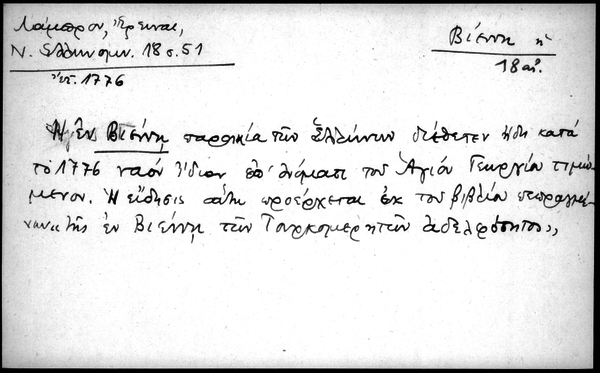 Λάμπρου, Ἔρευναι,
Ν. Ἑλληνομν. 18 σ. 51
ἔτ. 1776
Βιέννη ἡ
18 αἰ.
Ἡ ἐν Βιέννῃ παροικία τῶν Ἑλλήνων διέθετεν ἤδη κατὰ
τὸ 1776 ναὸν ἴδιον ἐπ' ὀνόματι τοῦ Ἁγίου Γεωργίου τιμώ-
μενον. Ἡ εἴδησις αὕτη προέρχεται ἐκ τοῦ βιβλίου
τῆς ἐν Βιέννῃ τῶν Τουρκομεριτῶν ἀδελφότητος»